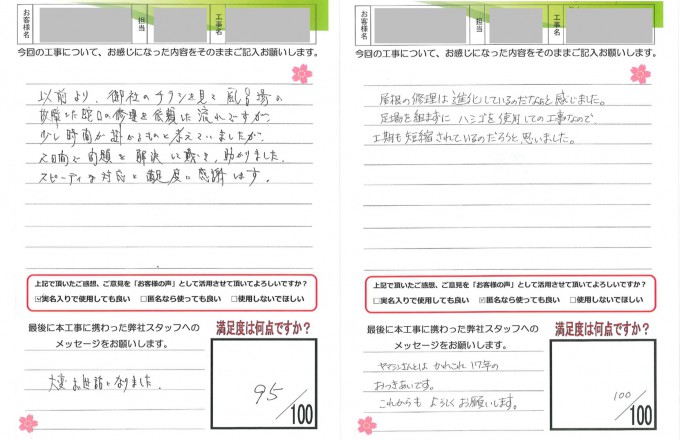 お客様名
担当
工事名
今回の工事について、お感じになった内容をそのままご記入お願いします。
以前より、御社のチラシを見て風呂場の
故障した蛇口の修理を依頼した流れですが、
少し時間が掛かるものと考えていましたが、
2日間で問題を解決して頂き、助かりました。
スピーディな対応と満足度に感謝します。
上記で頂いたご感想、ご意見を「お客様の声」として活用させて頂いてよろしいですか？
☑実名入りで使用しても良い　□匿名なら使っても良い　□使用しないでほしい
最後に本工事に携わった弊社スタッフへの
メッセージをお願いします。
大変お世話になりました。
満足度は何点ですか？
95
/100
お客様名
担当
工事名
今回の工事について、お感じになった内容をそのままご記入お願いします。
屋根の修理は進化しているのだなぁと感じました。
足場を組まずにハシゴを使用しての工事なので、
工期も短縮されているのだろうと思いました。
上記で頂いたご感想、ご意見を「お客様の声」として活用させて頂いてよろしいですか？
□実名入りで使用しても良い　☑匿名なら使っても良い　□使用しないでほしい
最後に本工事に携わった弊社スタッフへの
メッセージをお願いします。
ヤマシンさんとは かれこれ17年の
おつきあいです。
これからも よろしくお願いします。
満足度は何点ですか？
100
/100